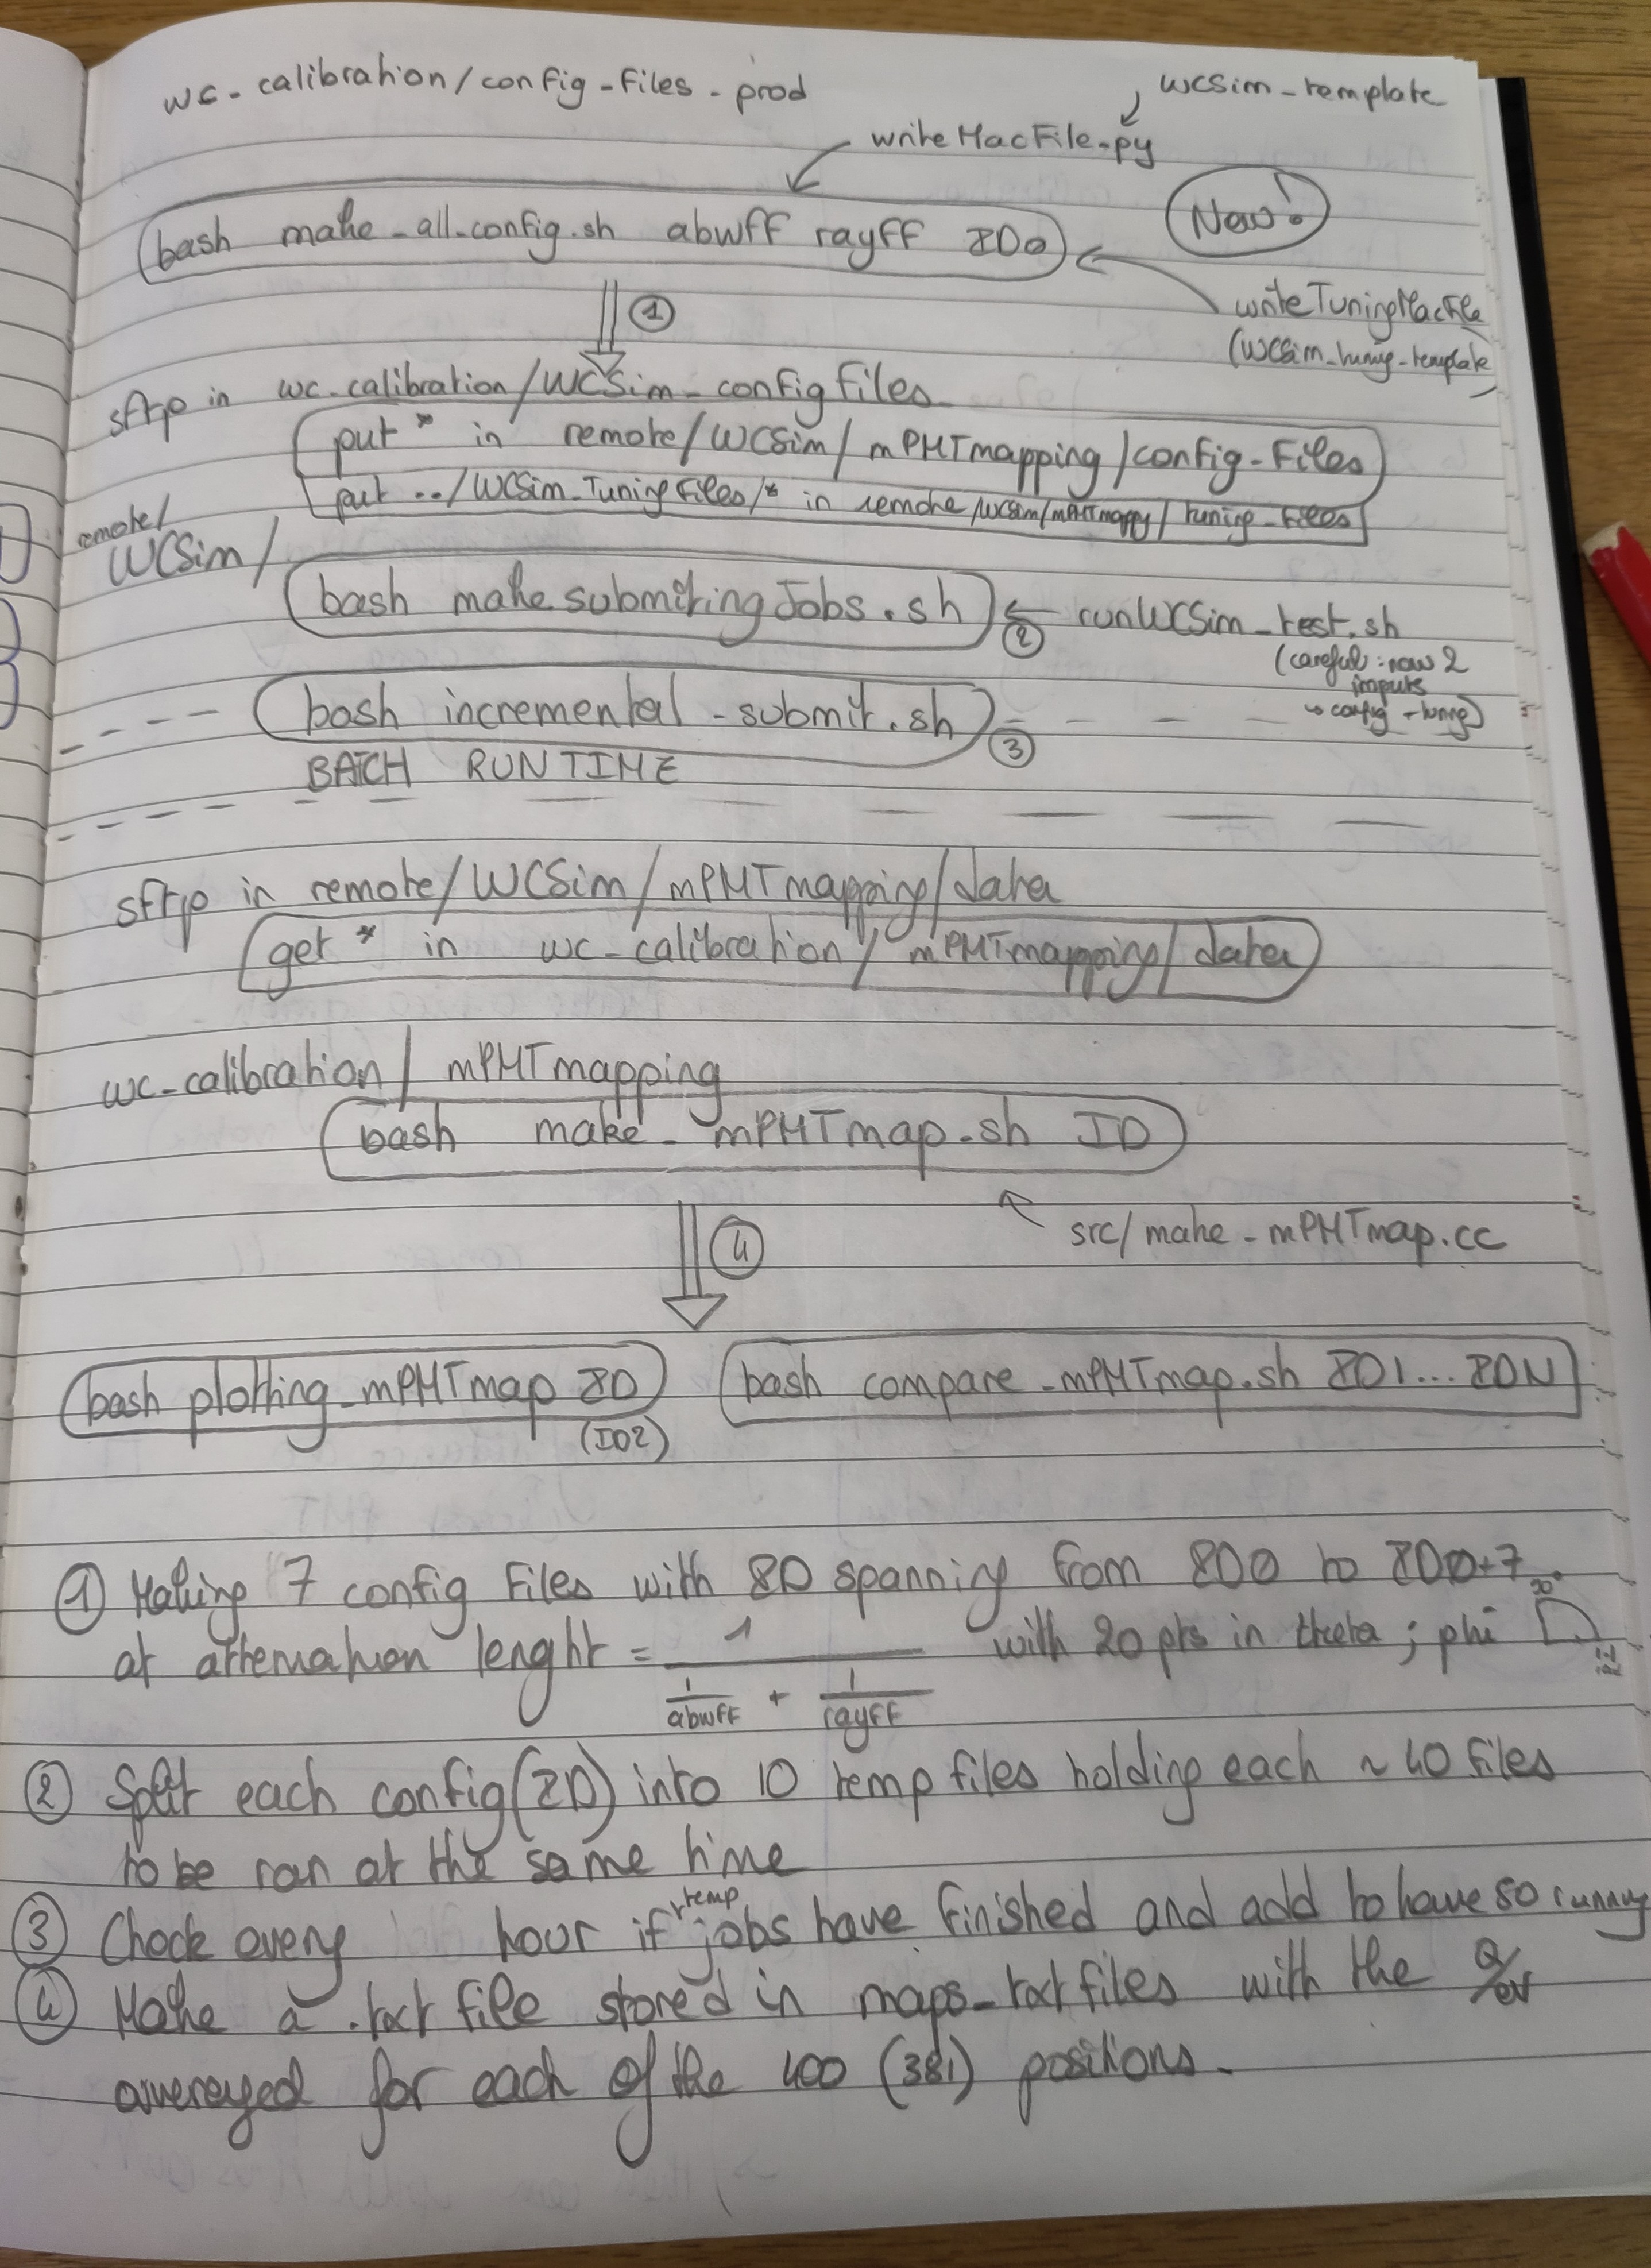 wc-calibration/config-files-prod
WCSim-template
writeMacFile.py
bash make-all-config.sh abwff rayff ID0
New!
writeTuningMacFile
(WCSim-tuning-template)
①
sftp in wc-calibration/WCSim-configfiles
put * in remote/WCSim/mPMTmapping/config-files
put ../WCSim-TuningFiles/* in remote/WCSim/mPMTmapping/tuning-files
remote/
WCSim/
bash makesubmittingJobs.sh
②
runWCSim-test.sh
(careful: now 2
inputs
↳ config + tuning)
bash incremental-submit.sh
③
BATCH RUNTIME
sftp in remote/WCSim/mPMTmapping/data
get * in wc-calibration/mPMTmapping/data
wc-calibration/mPMTmapping
bash make-mPMTmap.sh ID
④
src/make-mPMTmap.cc
bash plotting-mPMTmap ID
(ID2)
bash compare-mPMTmap.sh ID1...IDN
① Making 7 config files with ID spanning from ID0 to ID0+7
at attenuation lenght = 1 / (1/abwff + 1/rayff) with 20 pts in theta ; phi
② Split each config(ID) into 10 temp files holding each ~40 files
to be ran at the same time
③ Check every hour if temp jobs have finished and add to have 50 running
④ Make a .txt file stored in maps-txtfiles with the Q/ev
avereged for each of the 400 (381) positions.